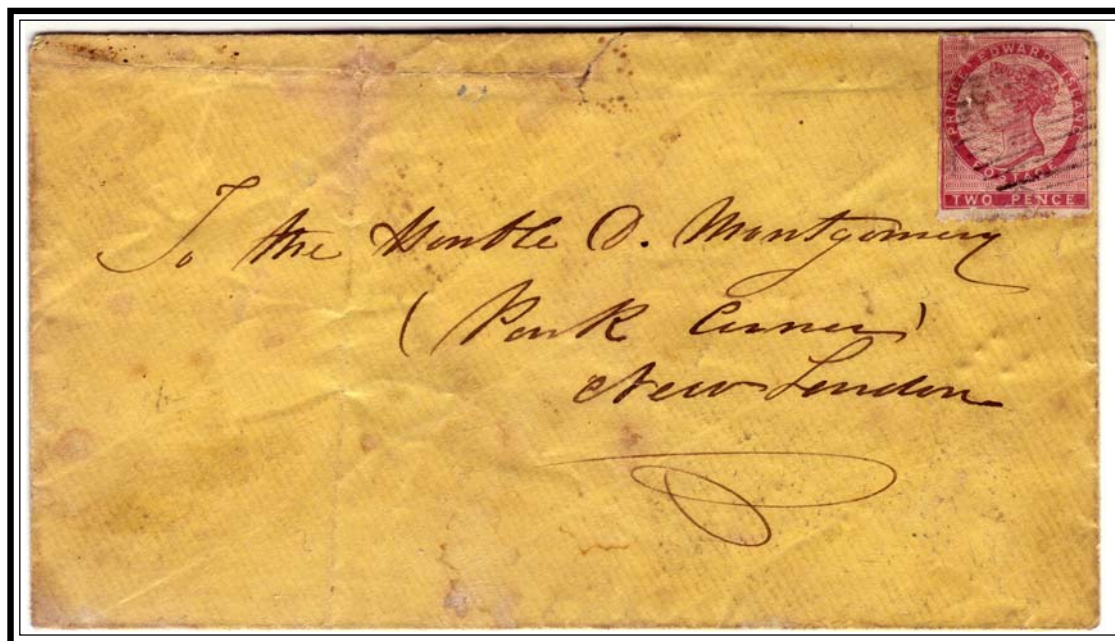 PRINCE EDWARD ISLAND
POSTAGE
TWO PENCE
To the Honble D. Montgomery
(Park Corner)
New London